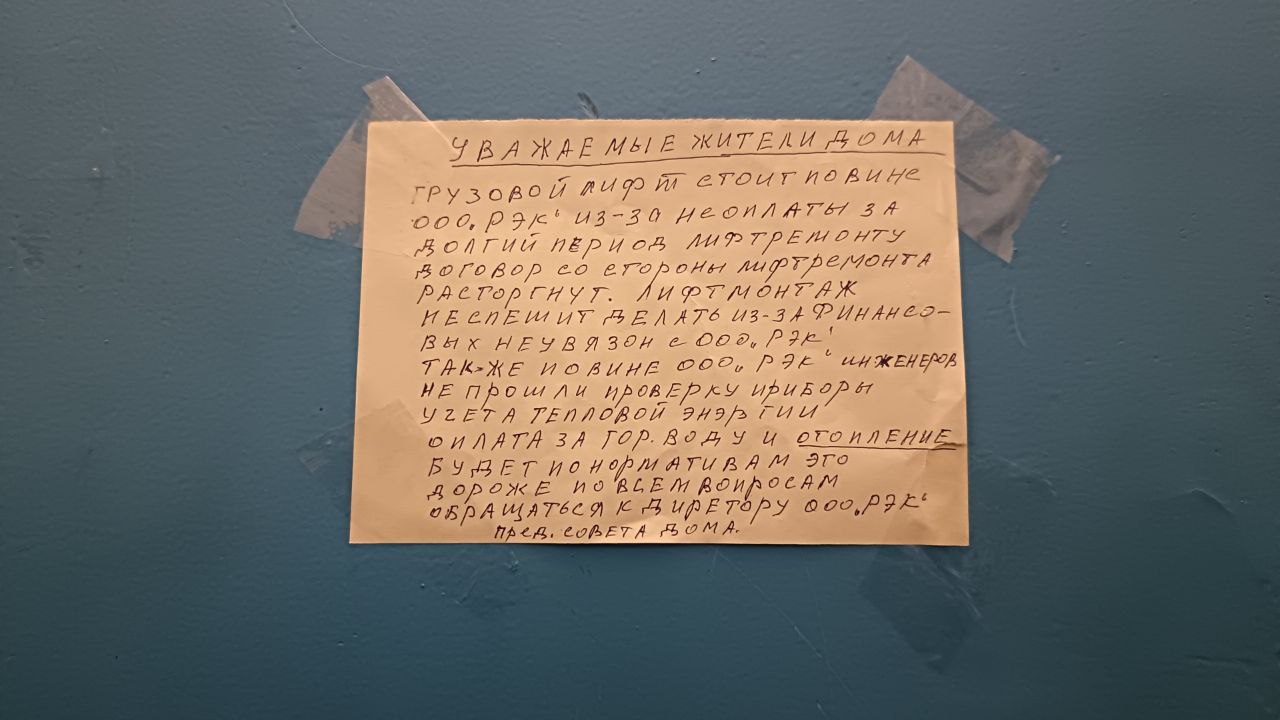 УВАЖАЕМЫЕ ЖИТЕЛИ ДОМА
ГРУЗОВОЙ ЛИФТ СТОИТ ПО ВИНЕ
ООО„РЭК“ ИЗ-ЗА НЕОПЛАТЫ ЗА
ДОЛГИЙ ПЕРИОД ЛИФТРЕМОНТУ
ДОГОВОР СО СТОРОНЫ ЛИФТРЕМОНТА
РАСТОРГНУТ. ЛИФТМОНТАЖ
НЕСПЕШИТ ДЕЛАТЬ ИЗ-ЗА ФИНАНСО-
ВЫХ НЕУВЯЗОН С ООО„РЭК“
ТАК-ЖЕ ПО ВИНЕ ООО„РЭК“ ИНЖЕНЕРОВ
НЕ ПРОШЛИ ПРОВЕРКУ ПРИБОРЫ
УЧЕТА ТЕПЛОВОЙ ЭНЭРГИИ
ОПЛАТА ЗА ГОР. ВОДУ И ОТОПЛЕНИЕ
БУДЕТ ПО НОРМАТИВАМ ЭТО
ДОРОЖЕ ПО ВСЕМ ВОПРОСАМ
ОБРАЩАТЬСЯ К ДИРЕТОРУ ООО„РЭК“
ПРЕД. СОВЕТА ДОМА.